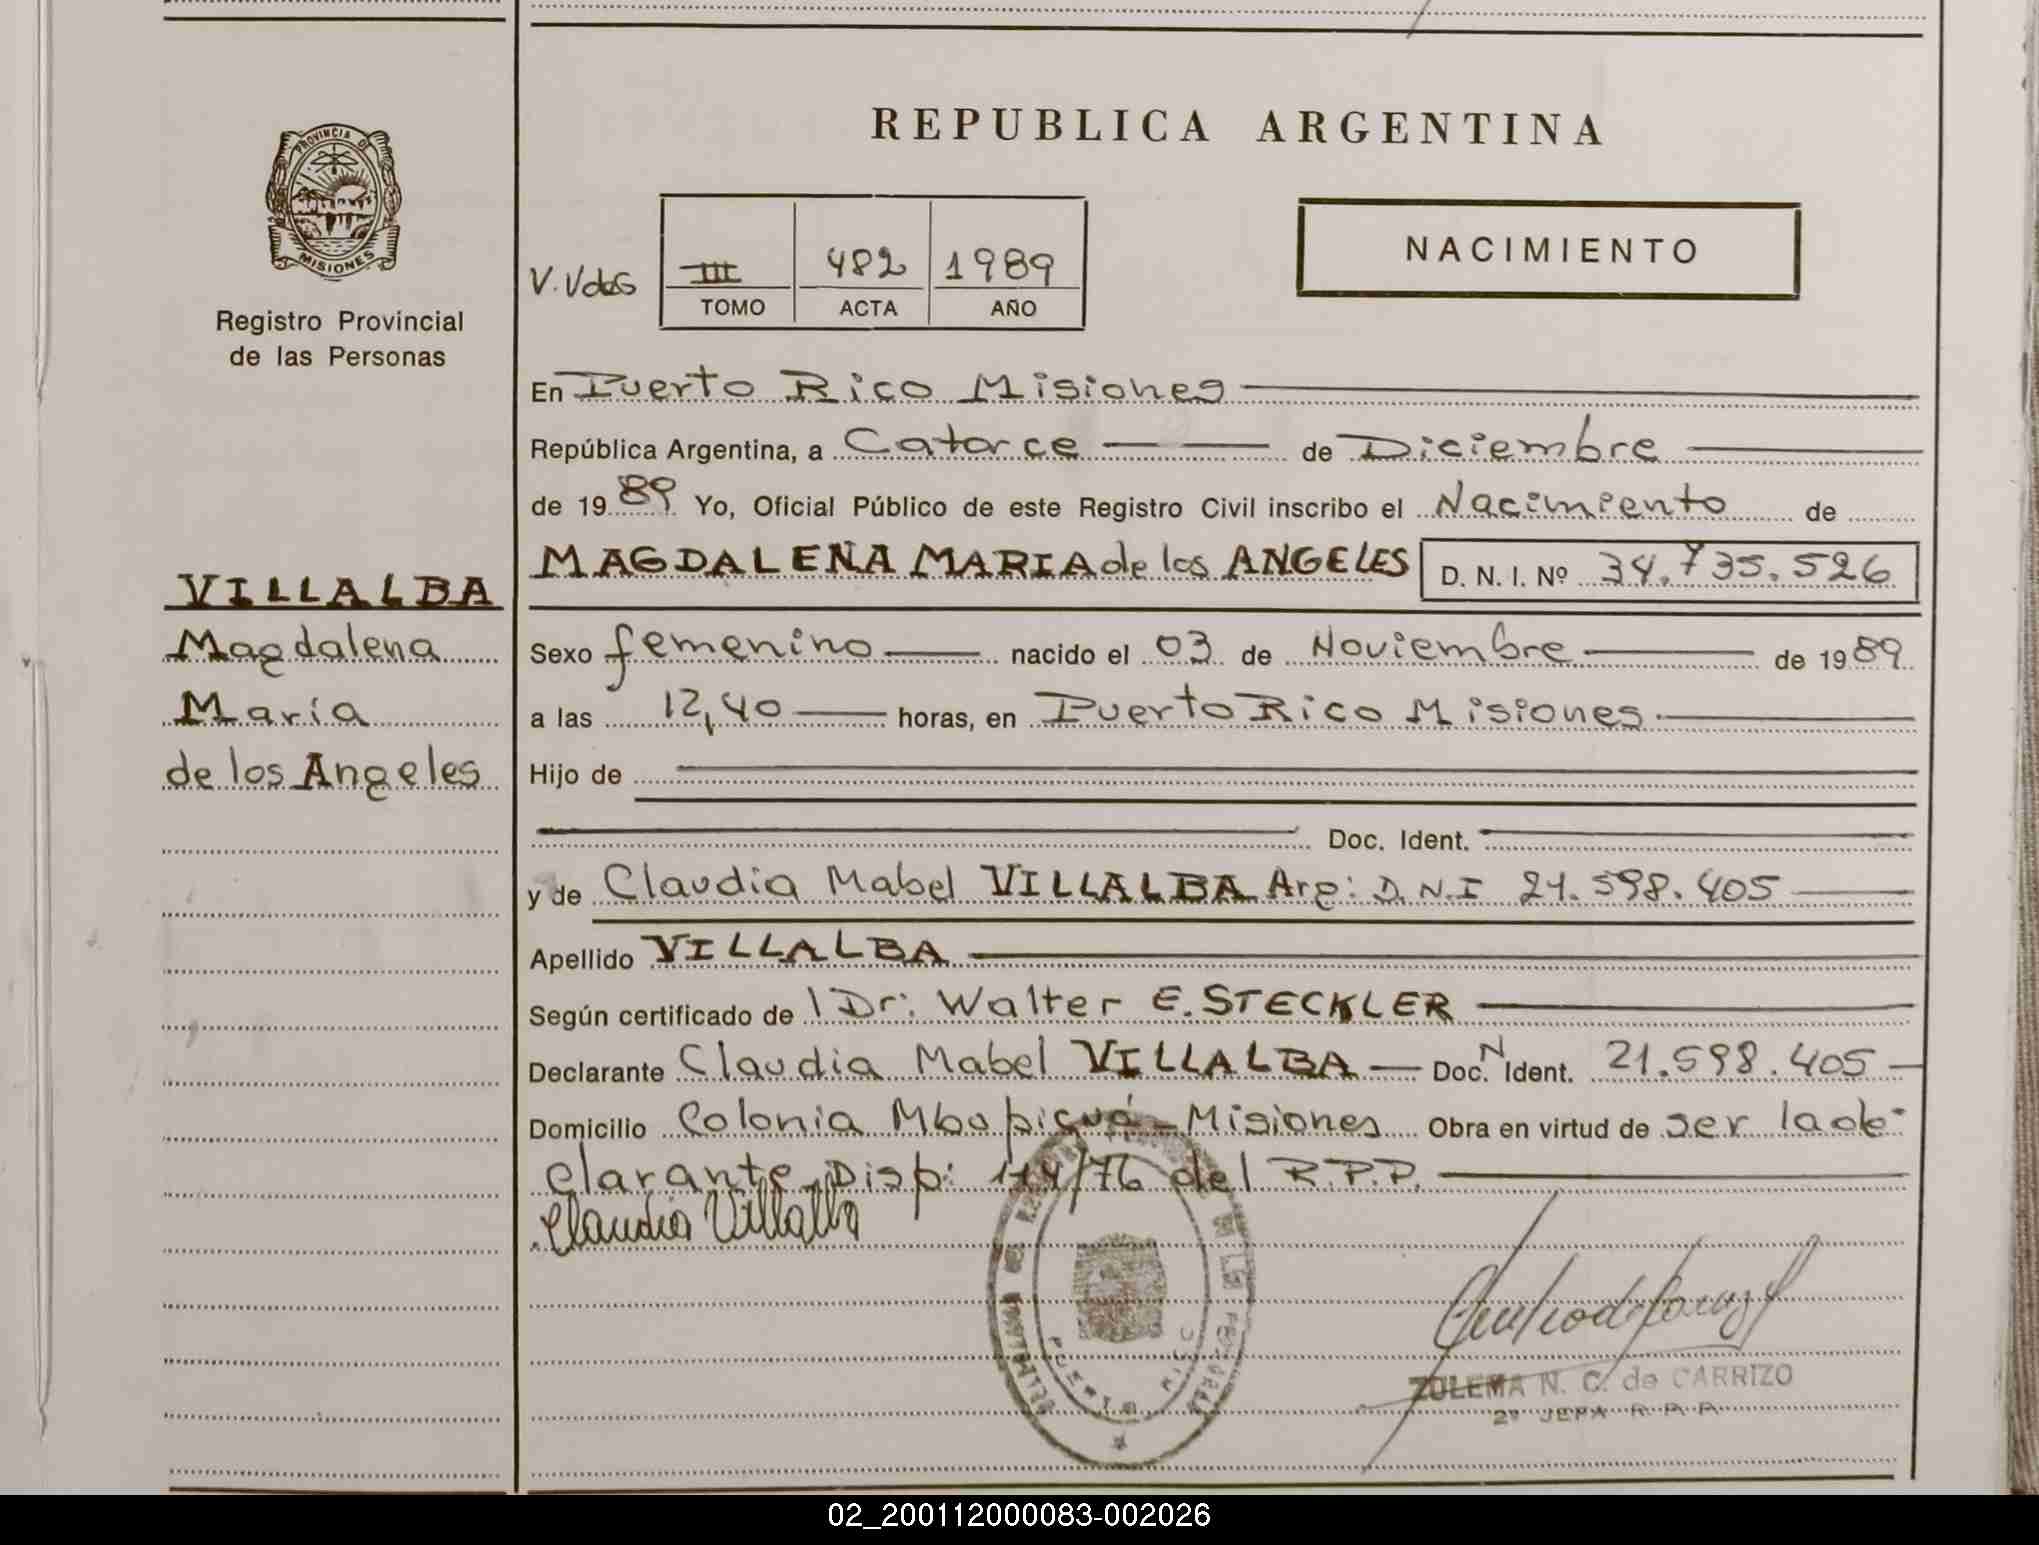 REPUBLICA ARGENTINA
PROVINCIA DE
MISIONES
Registro Provincial
de las Personas
NACIMIENTO
V. Vdes III 482 1989
TOMO ACTA AÑO
En Puerto Rico Misiones
República Argentina, a Catorce de Diciembre
de 1989 Yo, Oficial Público de este Registro Civil inscribo el Nacimiento de
MAGDALENA MARIA de los ANGELES D. N. I. Nº 34.735.526
VILLALBA
Magdalena
María
de los Angeles
Sexo femenino nacido el 03 de Noviembre de 1989
a las 12,40 horas, en Puerto Rico Misiones
Hijo de
Doc. Ident.
y de Claudia Mabel VILLALBA Arg: D.N.I 21.598.405
Apellido VILLALBA
Según certificado de l Dr: Walter E. STECKLER
Declarante Claudia Mabel VILLALBA Doc. N Ident. 21.598.405
Domicilio Colonia Mbopicuá - Misiones Obra en virtud de ser la de-
clarante Disp: 114/76 del R.P.P.
Claudia Villalba
ZULEMA N. C. de CARRIZO
2º JEFA R. P. P.
02_200112000083-002026